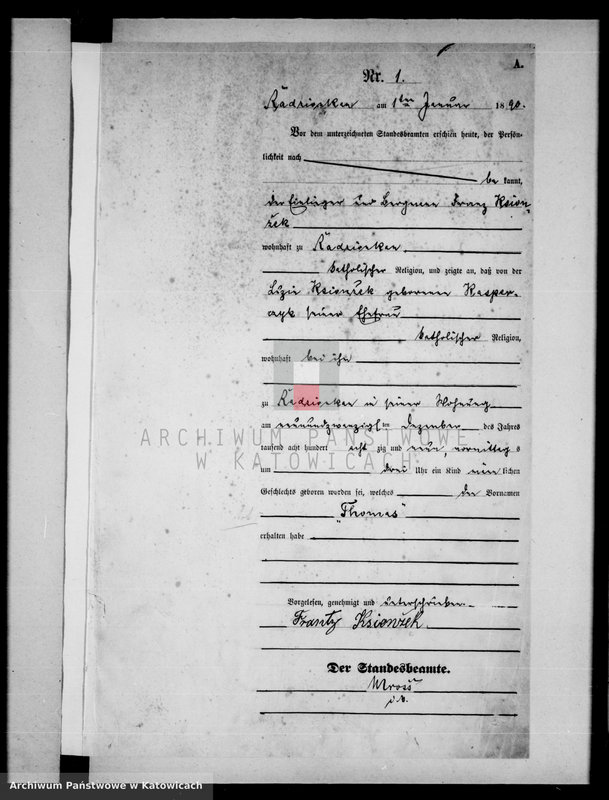 A.
Nr. 1.
am 1ten Januar 1890.
Vor dem unterzeichneten Standesbeamten erschien heute, der Persön-
lichkeit nach
be kannt,
der Einlieger und Bergmann Franz Ksion-
żek
wohnhaft zu
katholischer Religion, und zeigte an, daß von der
Luzie Ksionżek geborenen Kasper-
czyk seiner Ehefrau
katholischer Religion,
wohnhaft bei ihm
zu in seiner Wohnung
am neunundzwanzigsten Dezember des Jahres
tausend acht hundert acht zig und neun, vormittag s
um drei Uhr ein Kind männ lichen
Geschlechts geboren worden sei, welches den Vornamen
"Thomas"
erhalten habe
Vorgelesen, genehmigt und unterschrieben
Frantz Ksionżek
Der Standesbeamte.
Mross
ARCHIWUM PAŃSTWOWE
W KATOWICACH
Archiwum Państwowe w Katowicach